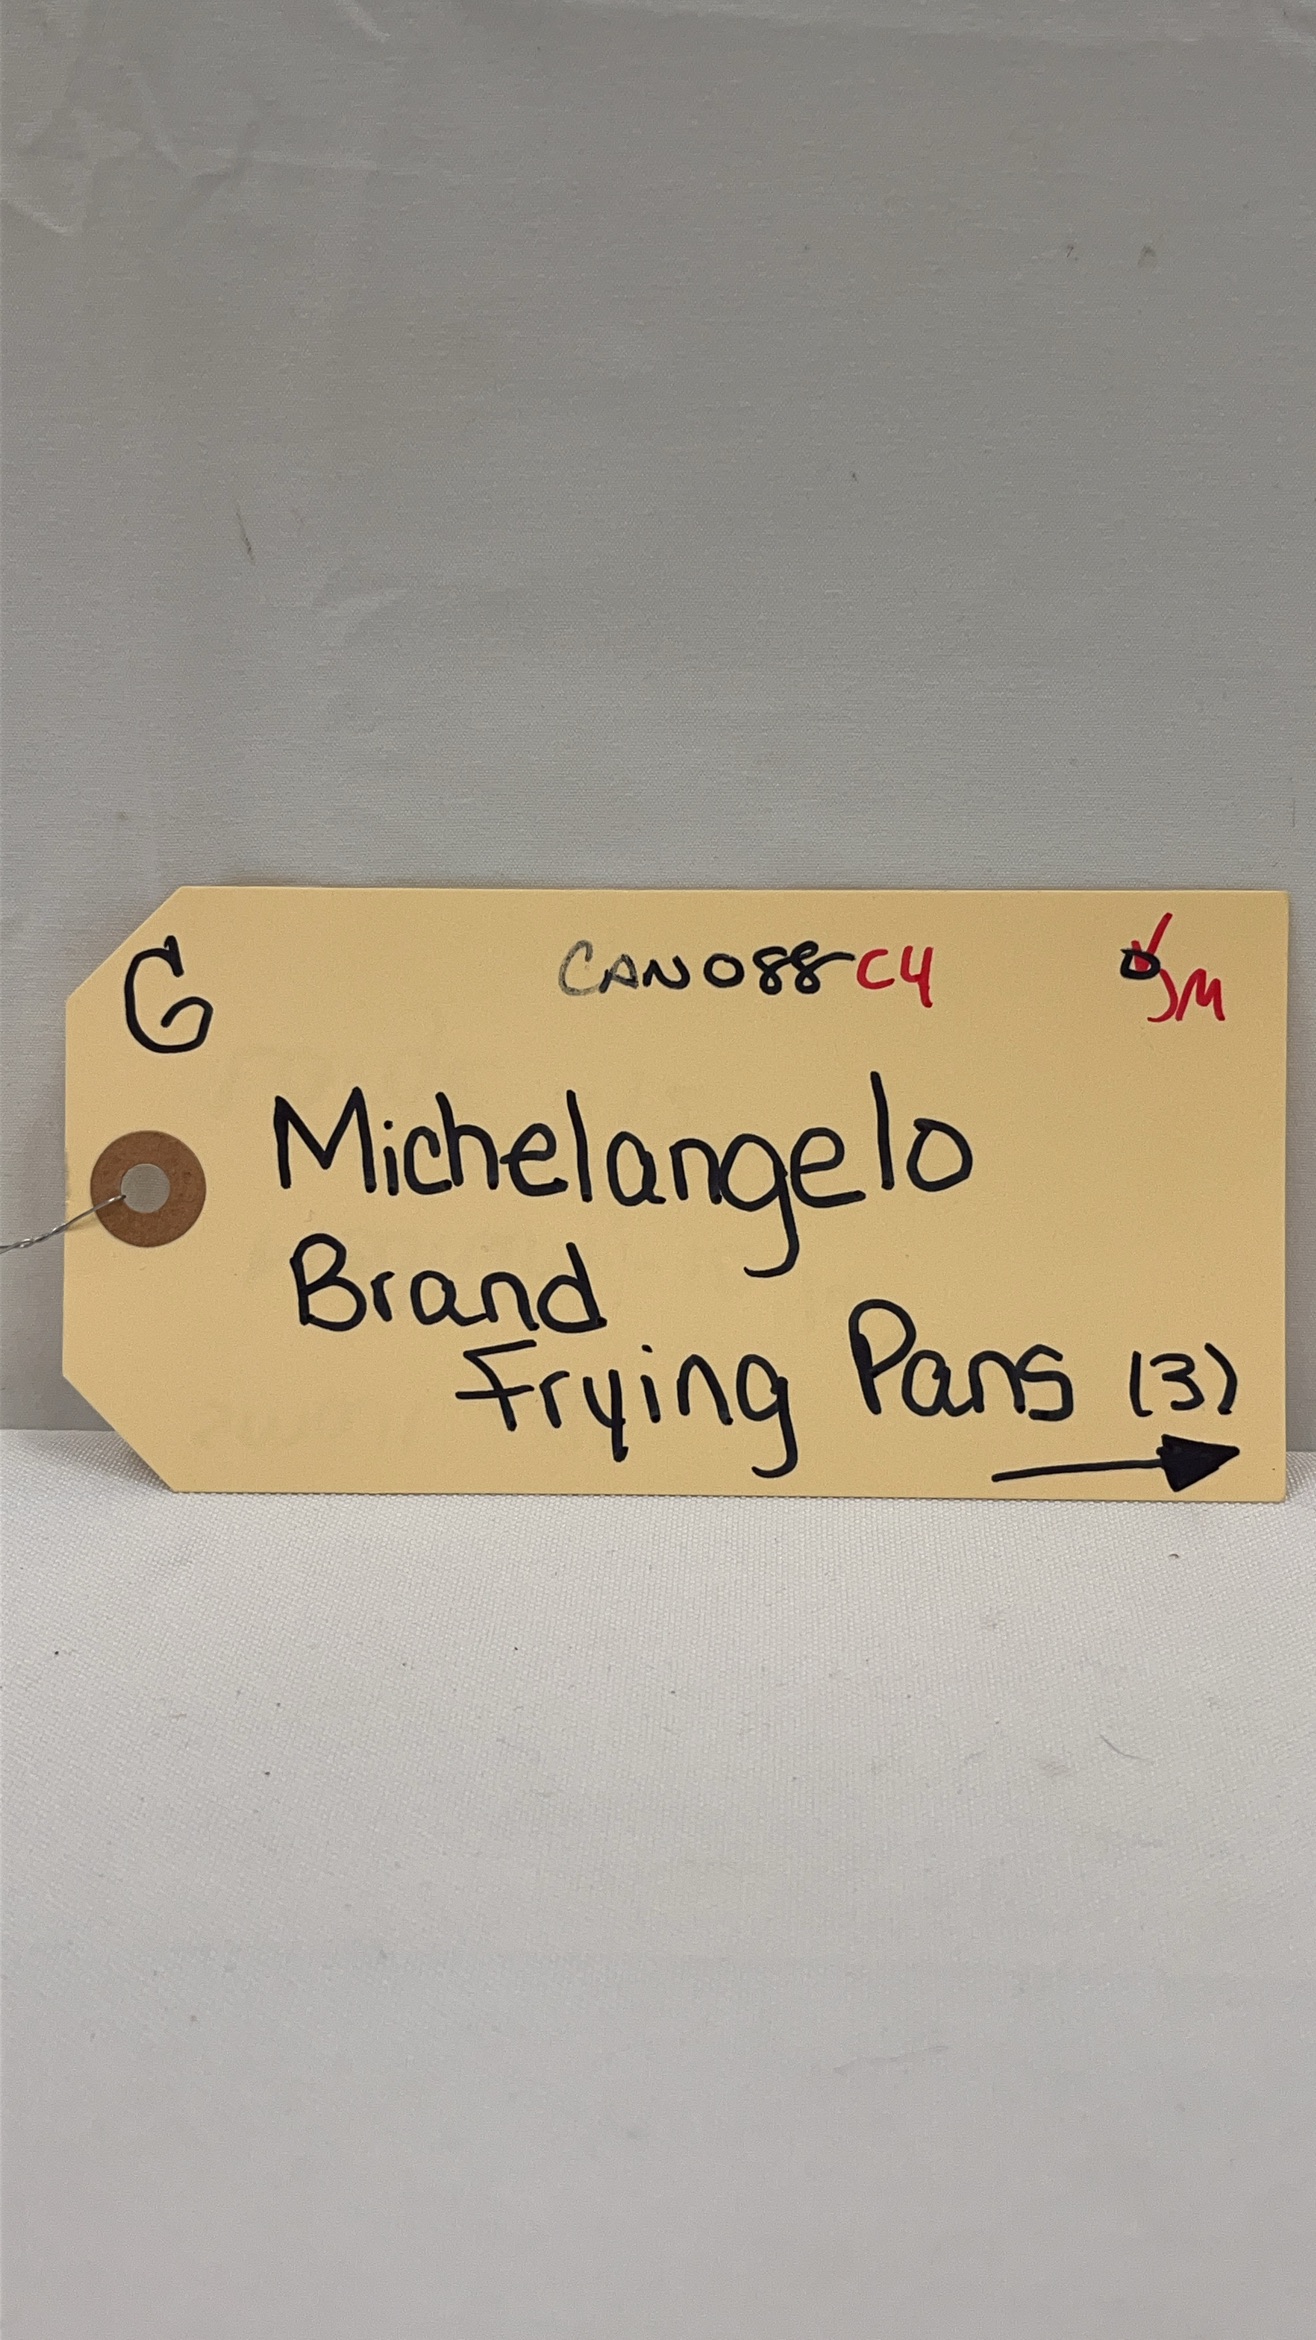 G
CAN088-C4
JM
Michelangelo
Brand
Frying Pans (3)